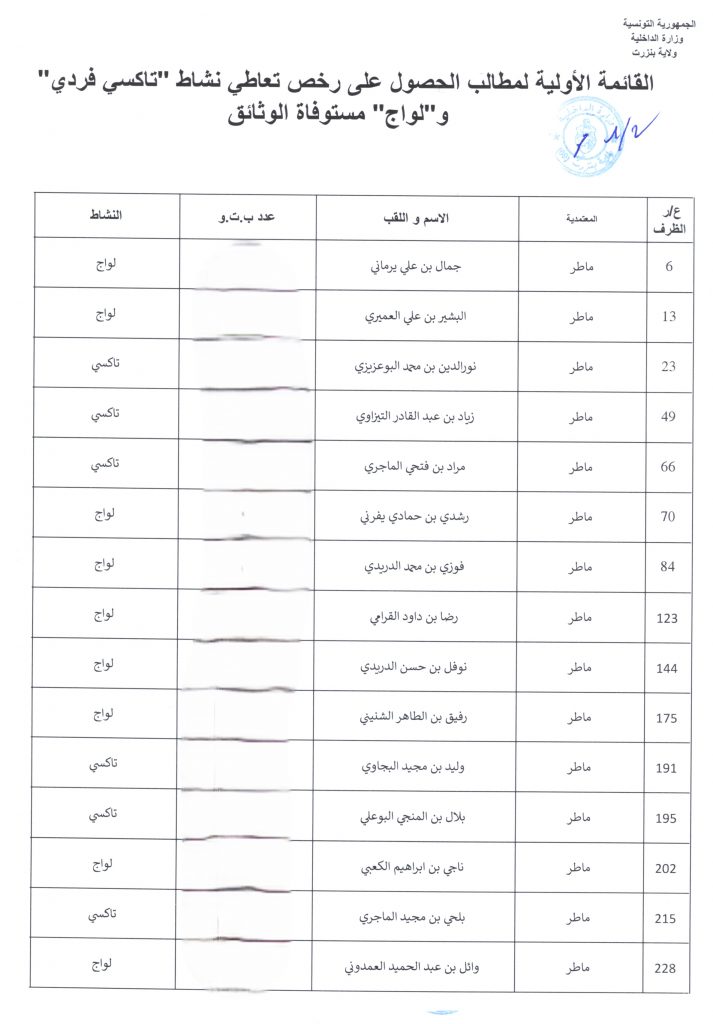 الجمهورية التونسية
وزارة الداخلية
ولاية بنزرت
القائمة الأولية لمطالب الحصول على رخص تعاطي نشاط "تاكسي فردي"
و"لواج" مستوفاة الوثائق
ع/ر الظرف المعتمدية الاسم و اللقب عدد ب.ت.و النشاط
6 ماطر جمال بن علي يرماني لواج
13 ماطر البشير بن علي العميري لواج
23 ماطر نورالدين بن محمد البوعزيزي تاكسي
49 ماطر زياد بن عبد القادر التيزاوي تاكسي
66 ماطر مراد بن فتحي الماجري تاكسي
70 ماطر رشدي بن حمادي يفرني لواج
84 ماطر فوزي بن محمد الدريدي لواج
123 ماطر رضا بن داود القرامي لواج
144 ماطر نوفل بن حسن الدريدي لواج
175 ماطر رفيق بن الطاهر الشنيني لواج
191 ماطر وليد بن مجيد البجاوي تاكسي
195 ماطر بلال بن المنجي البوعلي تاكسي
202 ماطر ناجي بن ابراهيم الكعبي لواج
215 ماطر بلحي بن مجيد الماجري تاكسي
228 ماطر وائل بن عبد الحميد العمدوني لواج